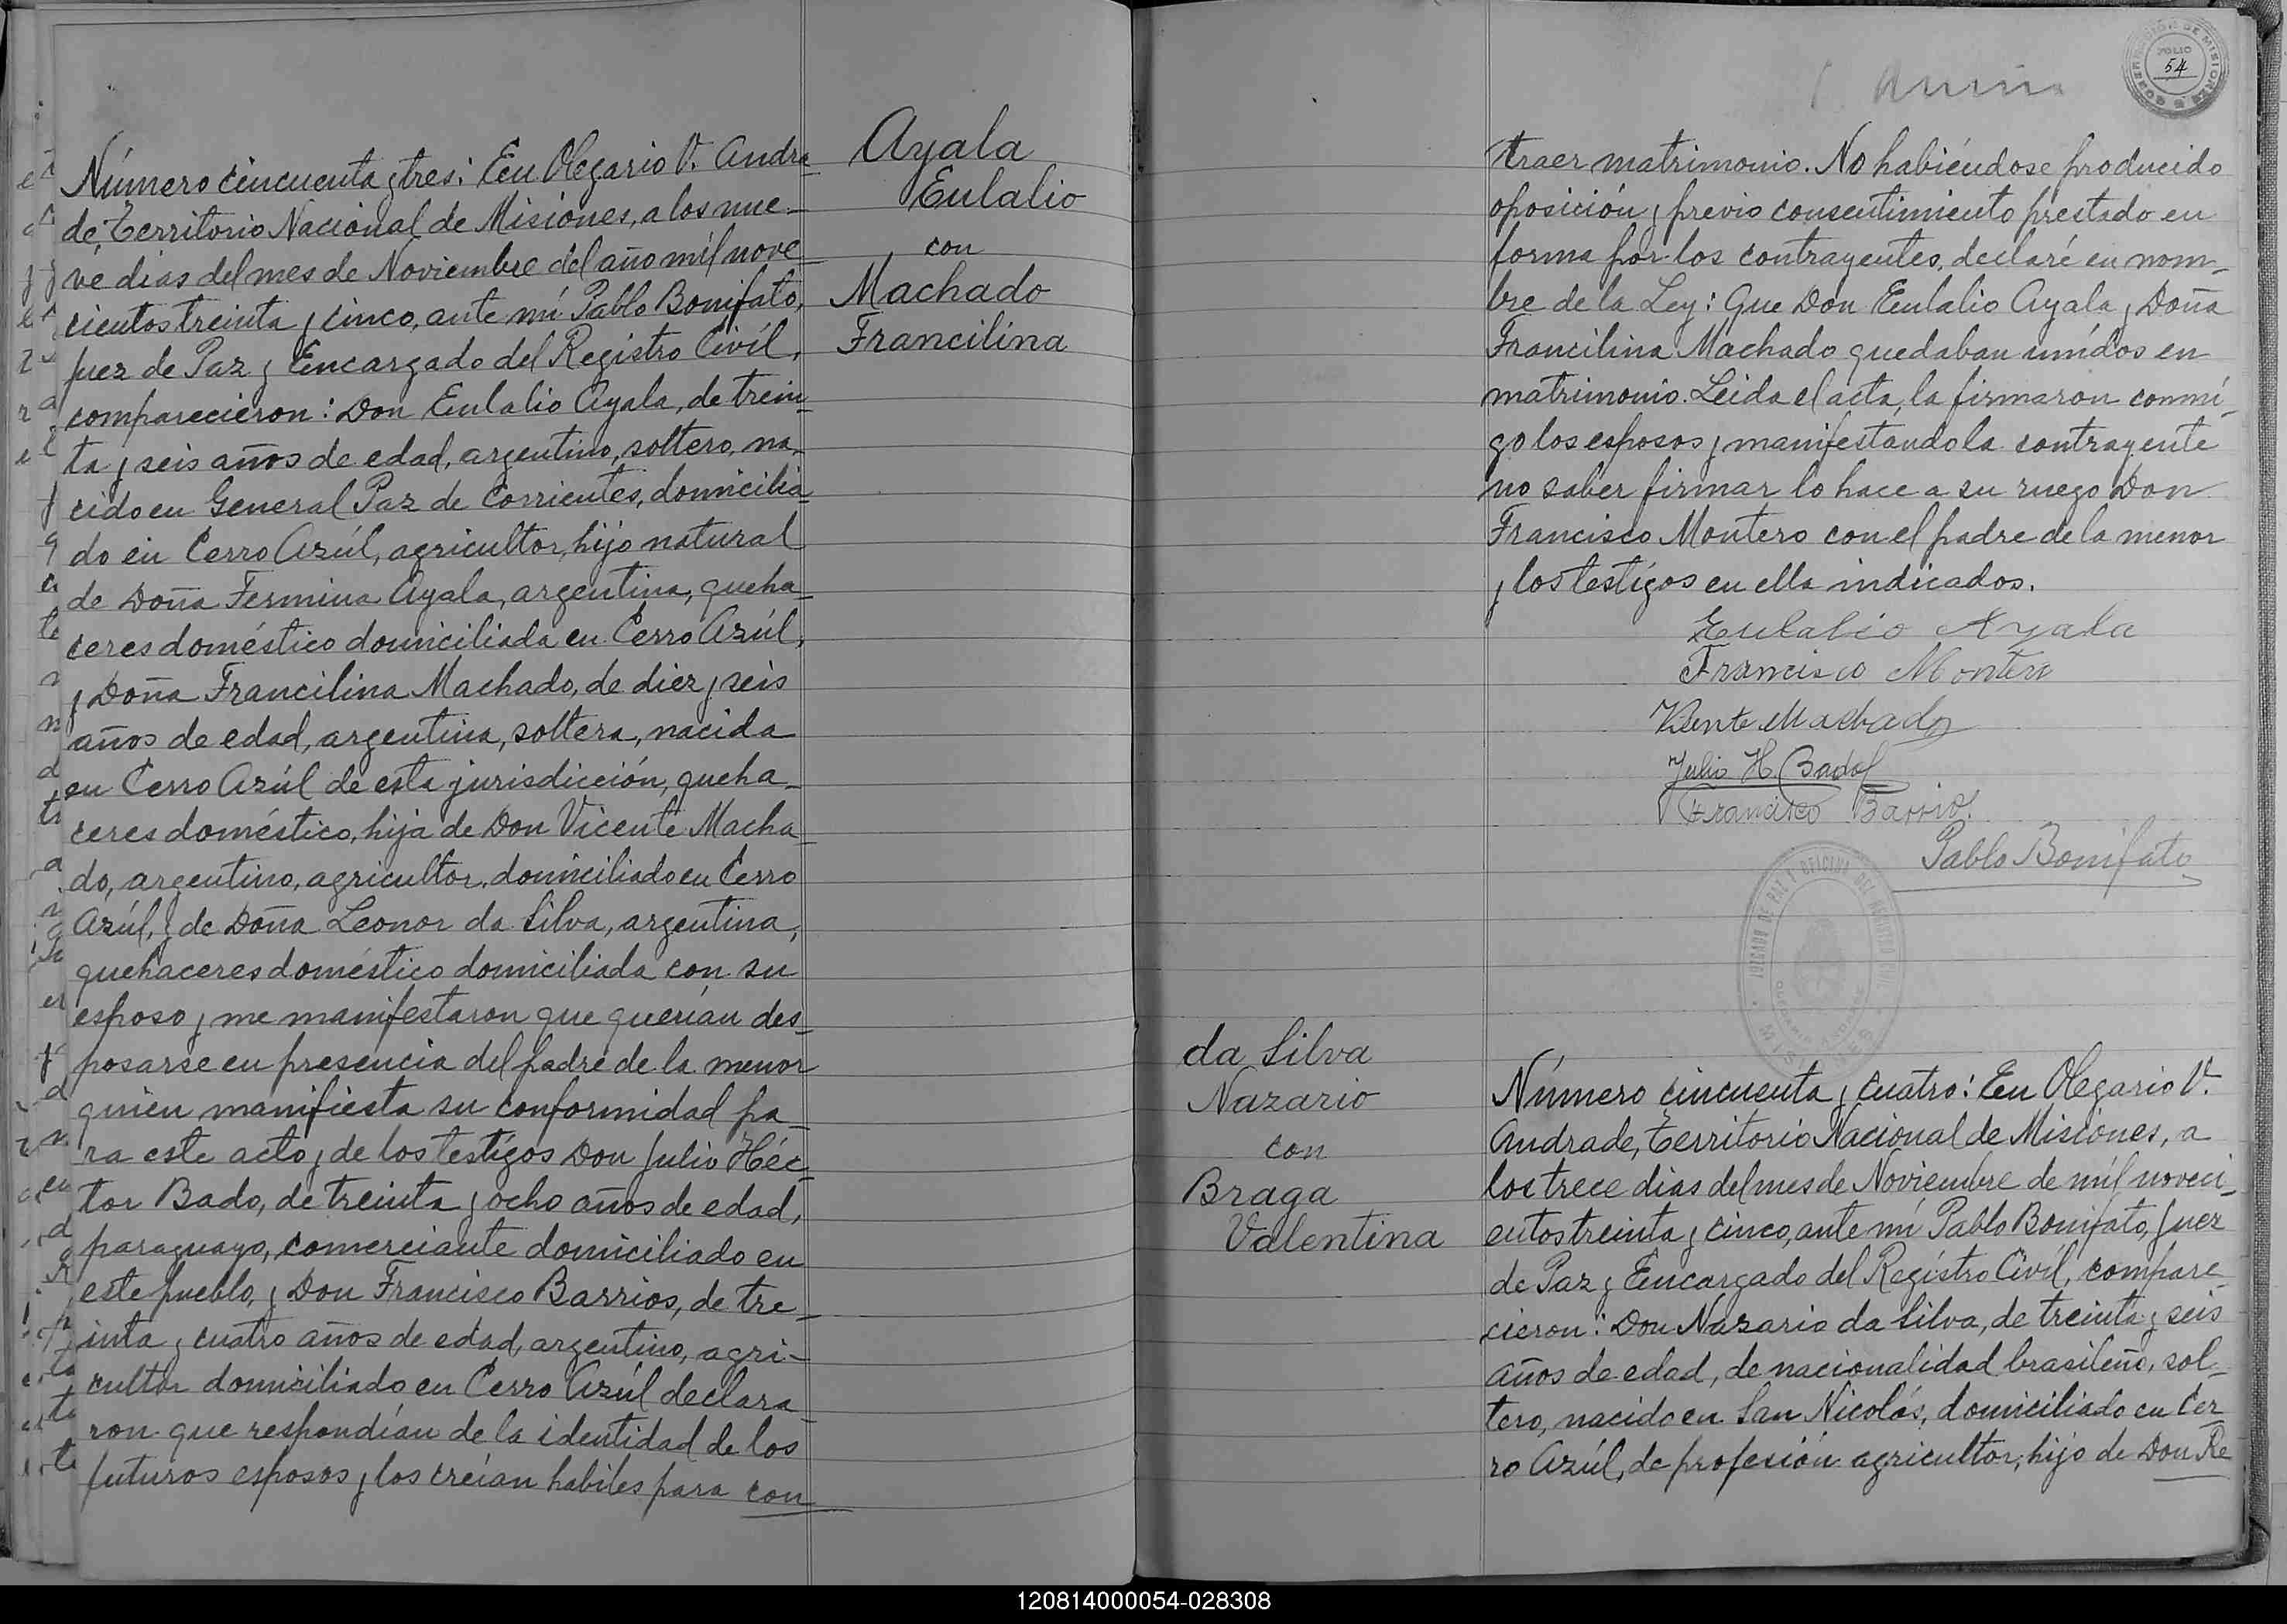 Número cincuenta y tres: En Olegario V. Andra-
de, Territorio Nacional de Misiones, a los nue-
ve dias del mes de Noviembre del año mil nove-
cientos treinta y cinco, ante mí Pablo Bonifato,
Juez de Paz y Encargado del Registro Civíl,
comparecieron: Don Eulalio Ayala, de trein-
ta y seis años de edad, argentino, soltero, na-
cido en General Paz de Corrientes, domicilia-
do en Cerro Azúl, agricultor, hijo natural
de Doña Fermina Ayala, argentina, queha-
ceres doméstico domiciliada en Cerro Azúl,
y Doña Francilina Machado, de diez y seis
años de edad, argentina, soltera, nacida
en Cerro Azúl de esta jurisdicción, queha-
ceres doméstico, hija de Don Vicente Macha-
do, argentino, agricultor, domiciliado en Cerro
Azúl, y de Doña Leonor da Silva, argentina,
quehaceres doméstico domiciliada con su
esposo y me manifestaron que querían des-
posarse en presencia del padre de la menor
quien manifiesta su conformidad pa-
ra este acto y de los testigos Don Julio Héc-
tor Bado, de treinta y ocho años de edad,
paraguayo, comerciante domiciliado en
este pueblo, y Don Francisco Barrios, de tre-
inta y cuatro años de edad, argentino, agri-
cultor domiciliado en Cerro Azúl declara-
ron que respondían de la identidad de los
futuros esposos y los creían habiles para con
Ayala
Eulalio
con
Machado
Francilina
FOLIO
54
traer matrimonio. No habiéndose producido
oposición y previo consentimiento prestado en
forma por los contrayentes, declaré en nom-
bre de la Ley: Que Don Eulalio Ayala y Doña
Francilina Machado quedaban unídos en
matrimonio. Leida el acta, la firmaron conmi-
go los esposos y manifestando la contrayente
no saber firmar lo hace a su ruego Don
Francisco Montero con el padre de la menor
y los testígos en ella indicados.
Eulalio Ayala
Francisco Montero
Vicente Machado
Julio H. Bado
Francisco Barrios
Pablo Bonifato
JUZGADO DE PAZ Y OFICINA DEL REGISTRO CIVIL
MISIONES
da Silva
Nazario
con
Braga
Valentina
Número cincuenta y cuatro: En Olegario V.
Andrade, Territorio Nacional de Misiones, a
los trece dias del mes de Noviembre de mil noveci-
entos treinta y cinco, ante mí Pablo Bonifato, Juez
de Paz y Encargado del Registro Civíl, compare-
cieron: Don Nazario da Silva, de treinta y seis
años de edad, de nacionalidad brasileño, sol-
tero, nacido en San Nicolás, domiciliado en Cer-
ro Azúl, de profesión agricultor, hijo de Don Re
120814000054-028308